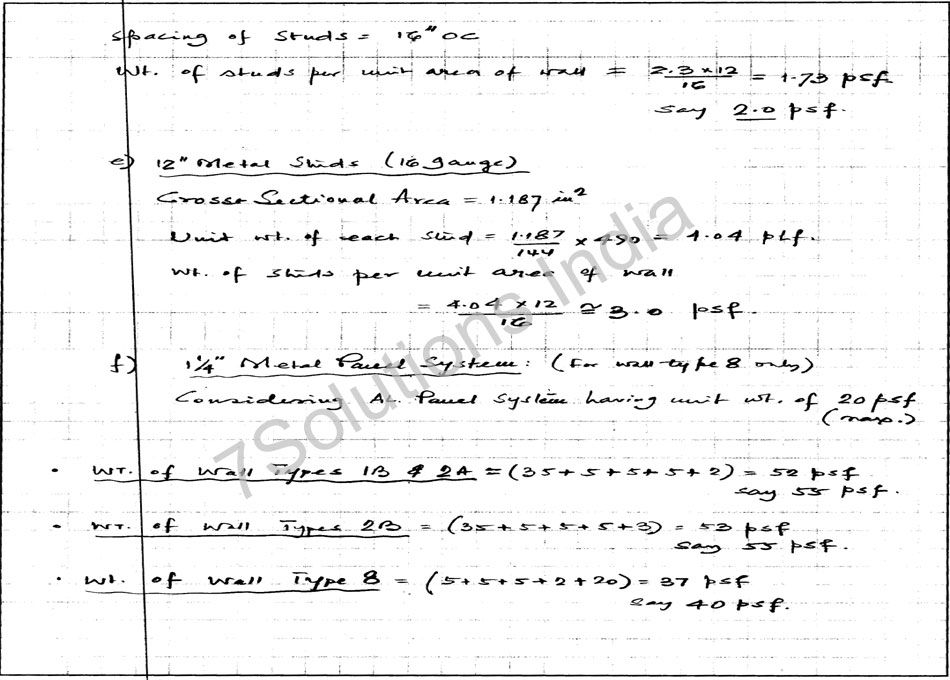 Spacing of Studs = 16" OC
Wt. of studs per unit area of wall = 2.3 x 12 / 16 = 1.73 psf
say 2.0 psf.
e) 12" Metal Studs (16 gauge)
Cross Sectional Area = 1.187 in²
Unit wt. of each stud = 1.187 / 144 x 490 = 4.04 plf.
Wt. of studs per unit area of wall
= 4.04 x 12 / 16 ≅ 3.0 psf.
f) 1¼" Metal Panel System: (For wall type 8 only)
Considering AL. Panel System having unit wt. of 20 psf
(max.)
• WT. of Wall Types 1B & 2A = (35+5+5+5+2) = 52 psf
say 55 psf.
• WT. of Wall Types 2B = (35+5+5+5+3) = 53 psf
say 55 psf.
• Wt. of Wall Type 8 = (5+5+5+2+20) = 37 psf
say 40 psf.
7Solutions India